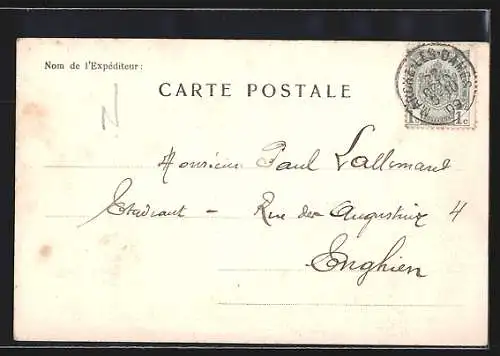 Nom de l'Expéditeur:
CARTE POSTALE
MARCHE-LES-DAMES
1 1c
N
Monsieur Paul Lallemand
Etudiant - Rue des Augustins 4
Enghien